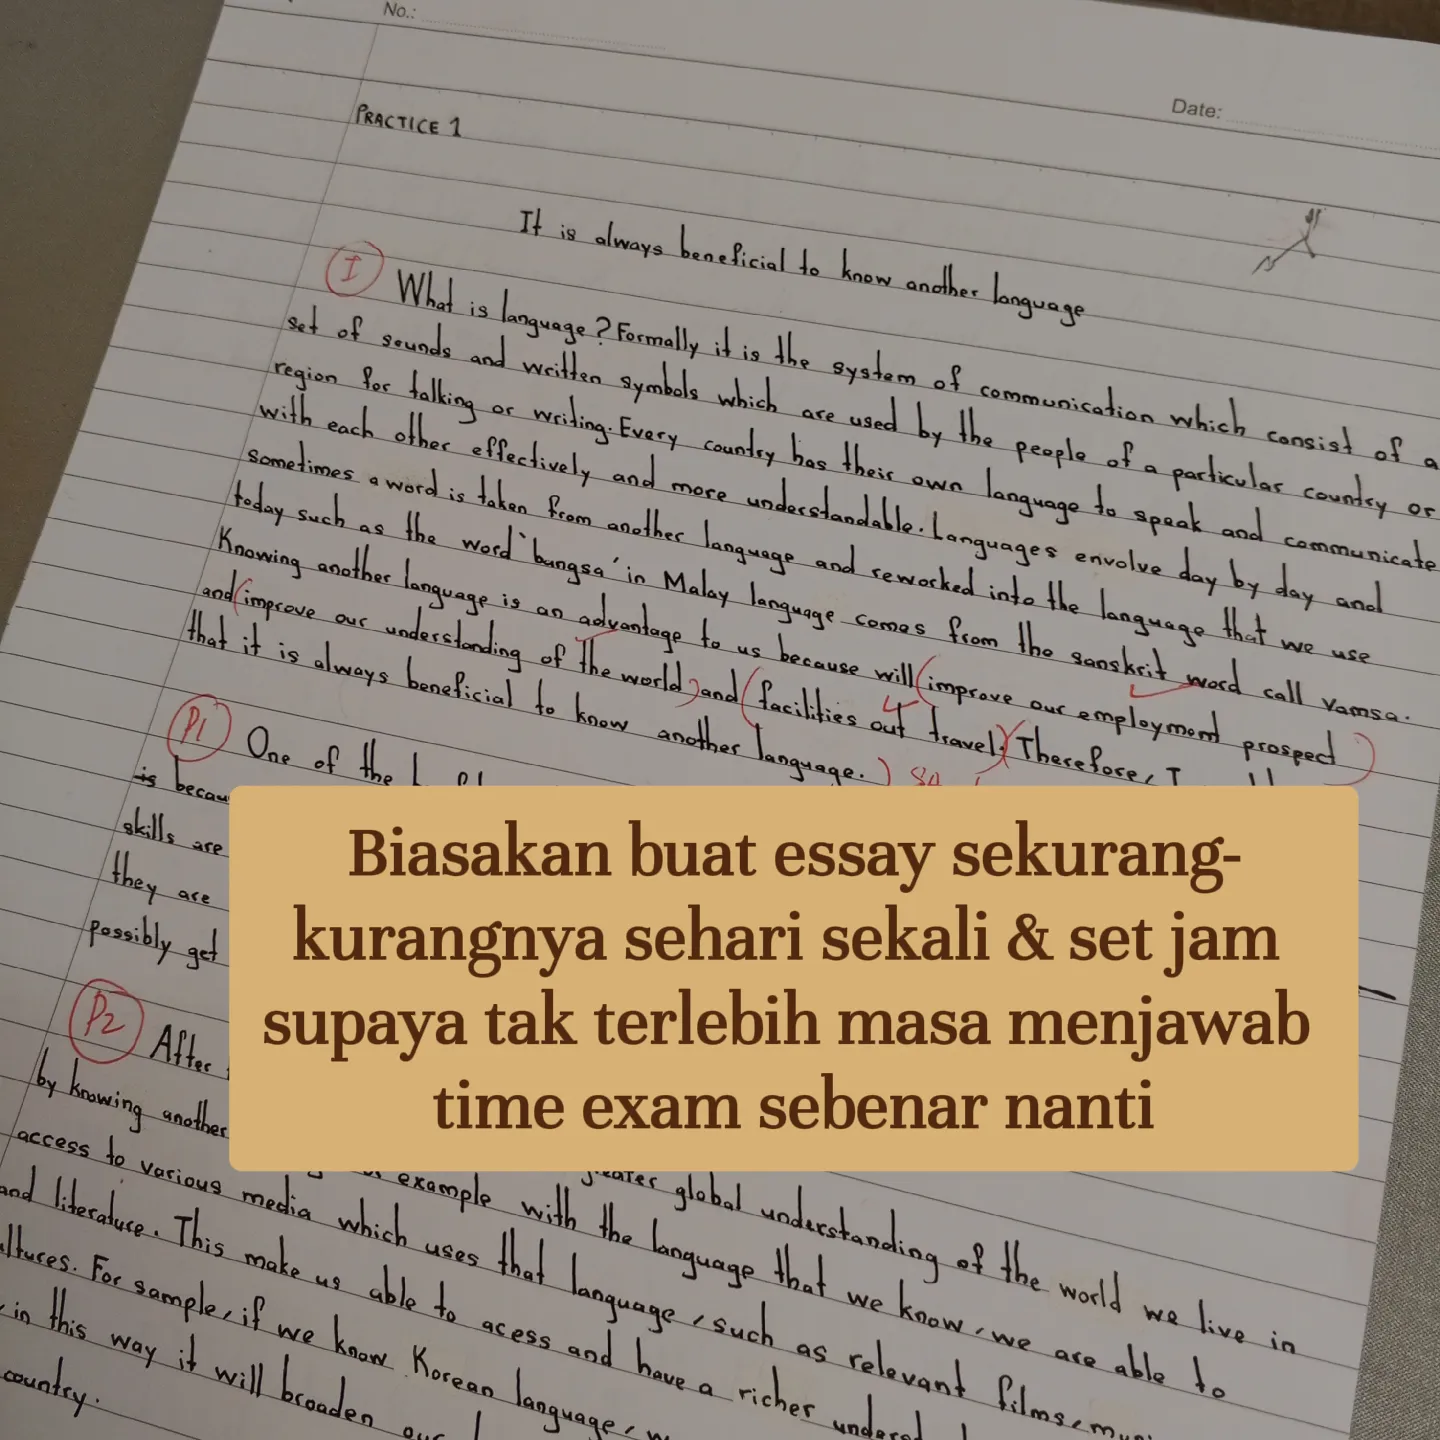 No.:
Date:
PRACTICE 1
It is always beneficial to know another language
I
What is language? Formally it is the system of communication which consist of a
set of sounds and written symbols which are used by the people of a particular country or
region for talking or writing. Every country has their own language to speak and communicate
with each other effectively and more understandable. Languages envolve day by day and
sometimes a word is taken from another language and reworked into the language that we use
today such as the word 'bangsa' in Malay language comes from the sanskrit word call vamsa.
Knowing another language is an advantage to us because will (improve our employment prospect)
and (improve our understanding of the world) and (facilities out travel.) (Therefore, I
that it is always beneficial to know another language.)
P1
One of the
is becau
skills are
they are
possibly get
Biasakan buat essay sekurang-
kurangnya sehari sekali & set jam
supaya tak terlebih masa menjawab
time exam sebenar nanti
P2
After
greater global understanding of the world we live in
by knowing another
example with the language that we know, we are able to
access to various media which uses that language, such as relevant films,
and literature. This make us able to acess and have a richer
For sample, if we know Korean language,
in this way it will broaden our
country.